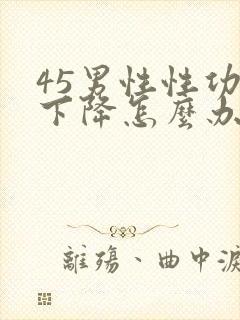 45男性性功
下降怎麼办
離殤、曲中淚